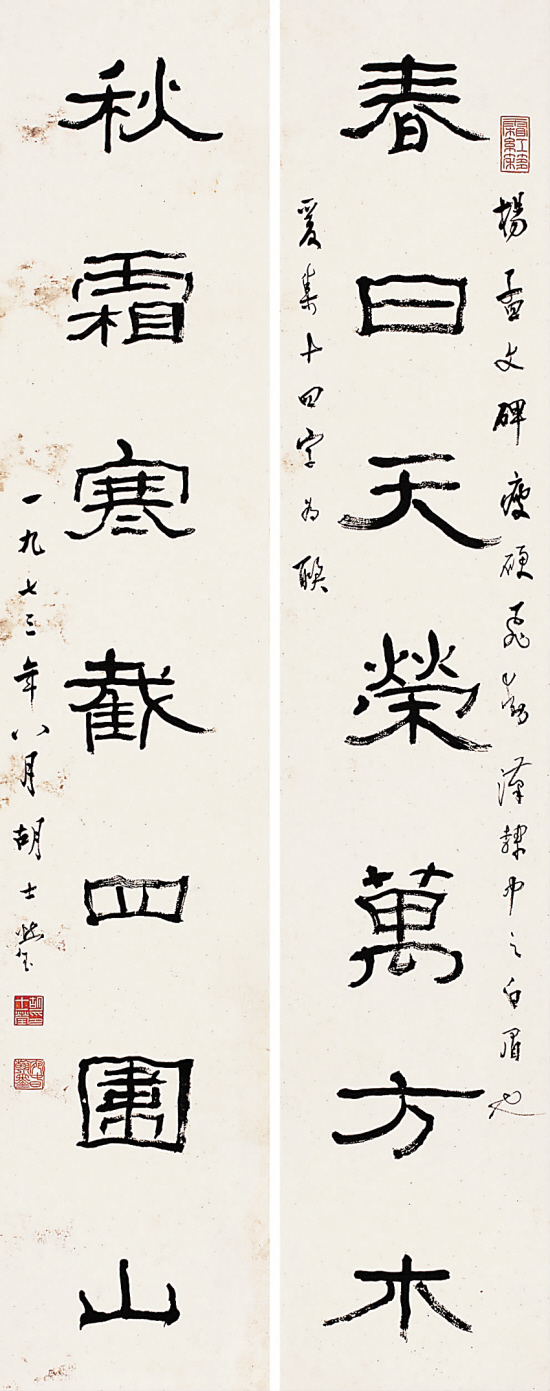 春日天榮萬方木
楊孟文碑瘦硬飛動漢隸中之白眉也
爰集十四字為聯
秋霜寒截四圍山
一九七三年八月胡士瑩
胡印士瑩